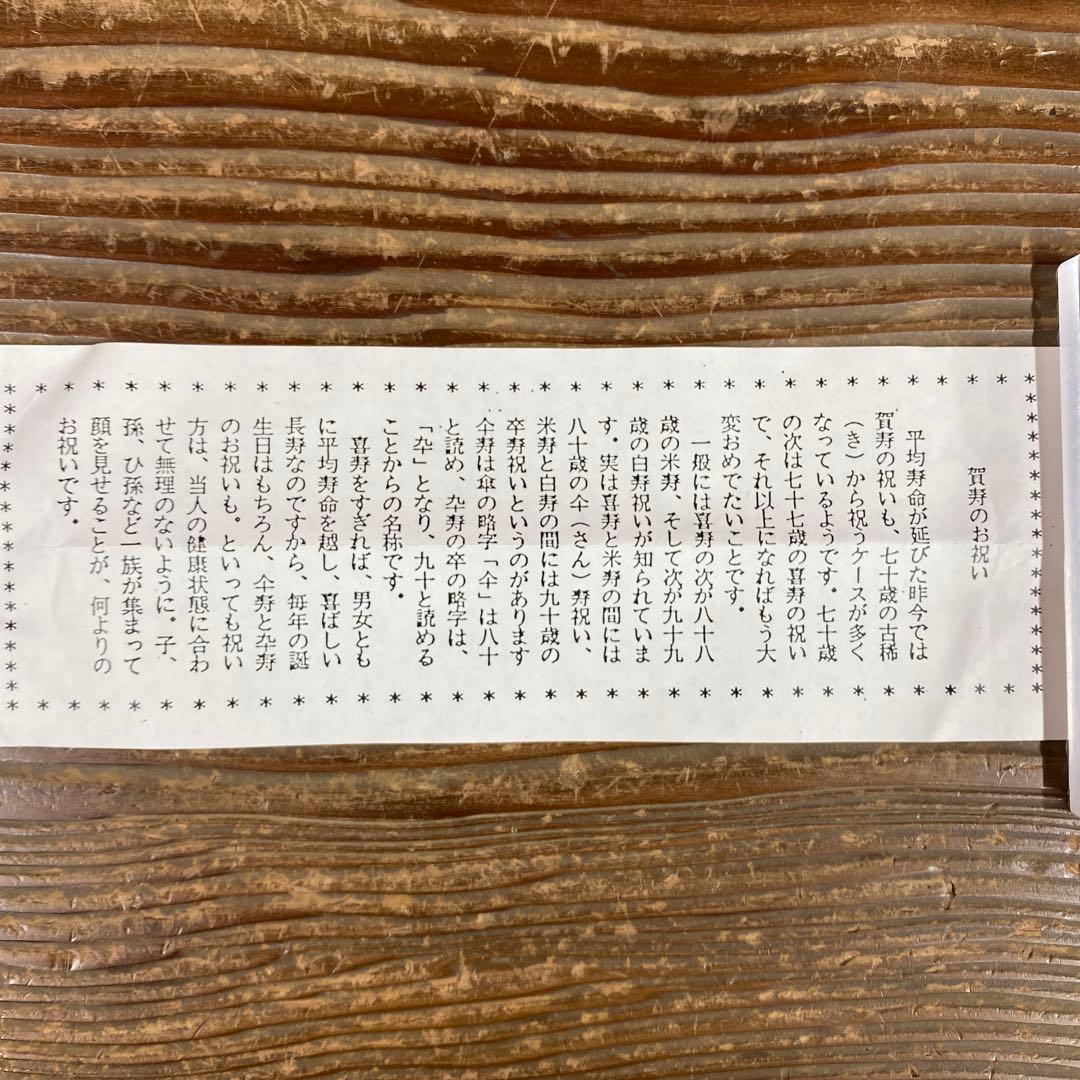 賀寿のお祝い
平均寿命が延びた昨今では
賀寿の祝いも、七十歳の古稀
（き）から祝うケースが多く
なっているようです。七十歳
の次は七十七歳の喜寿の祝い
で、それ以上になればもう大
変おめでたいことです。
一般には喜寿の次が八十八
歳の米寿、そして次が九十九
歳の白寿祝いが知られていま
す。実は喜寿と米寿の間には
八十歳の仐（さん）寿祝い、
米寿と白寿の間には九十歳の
卒寿祝いというのがあります
仐寿は傘の略字「仐」は八十
と読め、卆寿の卒の略字は、
「卆」となり、九十と読める
ことからの名称です。
喜寿をすぎれば、男女とも
に平均寿命を越し、喜ばしい
長寿なのですから、毎年の誕
生日はもちろん、仐寿と卆寿
のお祝いも。といっても祝い
方は、当人の健康状態に合わ
せて無理のないように。子、
孫、ひ孫など一族が集まって
顔を見せることが、何よりの
お祝いです。